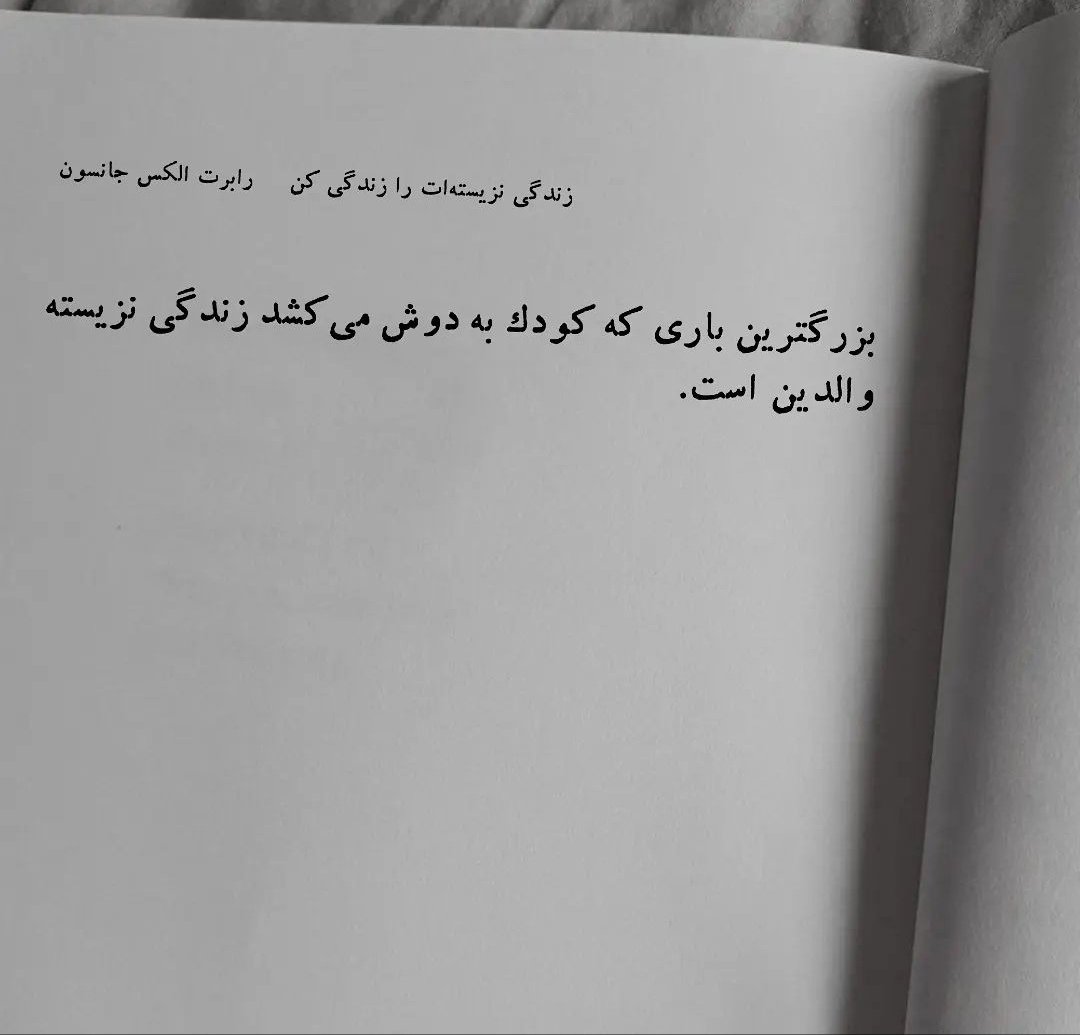 زندگی نزیسته‌ات را زندگی کن رابرت الکس جانسون
بزرگترین باری که کودك به دوش می‌کشد زندگی نزیسته
والدین است.